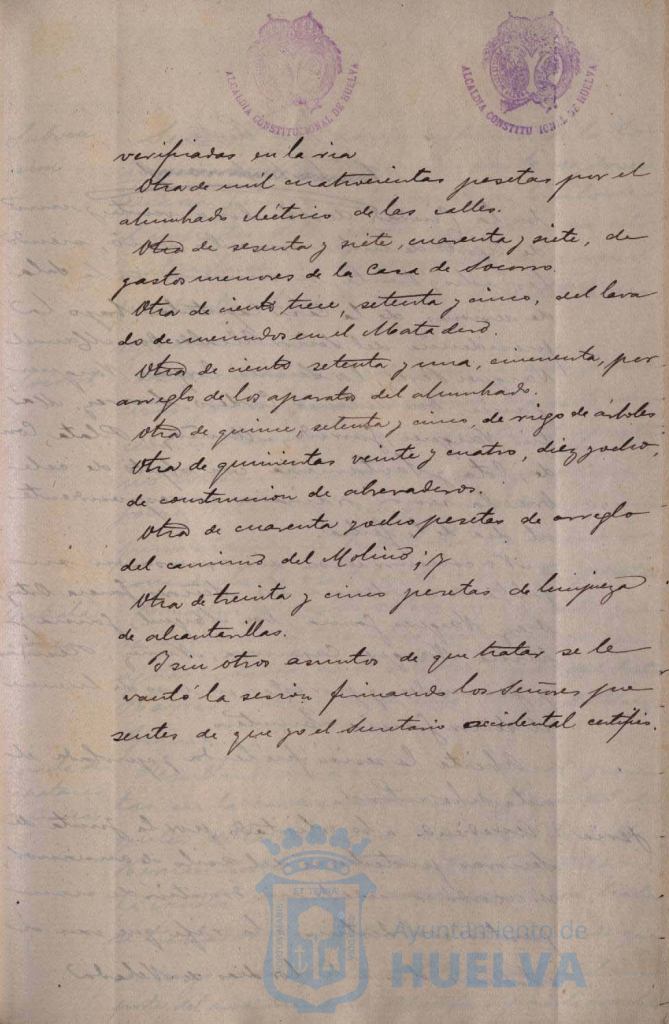 ALCALDIA CONSTITUCIONAL DE HUELVA
ALCALDIA CONSTITUCIONAL DE HUELVA
verificadas en la ria
Otra de mil cuatrocientas pesetas por el
alumbrado eléctrico de las calles.
Otra de sesenta y siete, cuarenta y siete, de
gastos menores de la Casa de Socorro.
Otra de ciento trece, setenta y cinco, del lava
do de menudos en el Matadero.
Otra de ciento setenta y una, cincuenta, por
arreglo de los aparatos del alumbrado.
Otra de quince, setenta y cinco, de riego de árboles
Otra de quinientas veinte y cuatro, diez y ocho,
de construccion de abrevaderos.
Otra de cuarenta y ocho pesetas de arreglo
del camino del Molino; y
Otra de treinta y cinco pesetas de limpieza
de alcantarillas.
Y sin otros asuntos de que tratar se le
vantó la sesion firmando los Señores pre
sentes de que yo el Secretario accidental certifico.
Ayuntamiento de
HUELVA